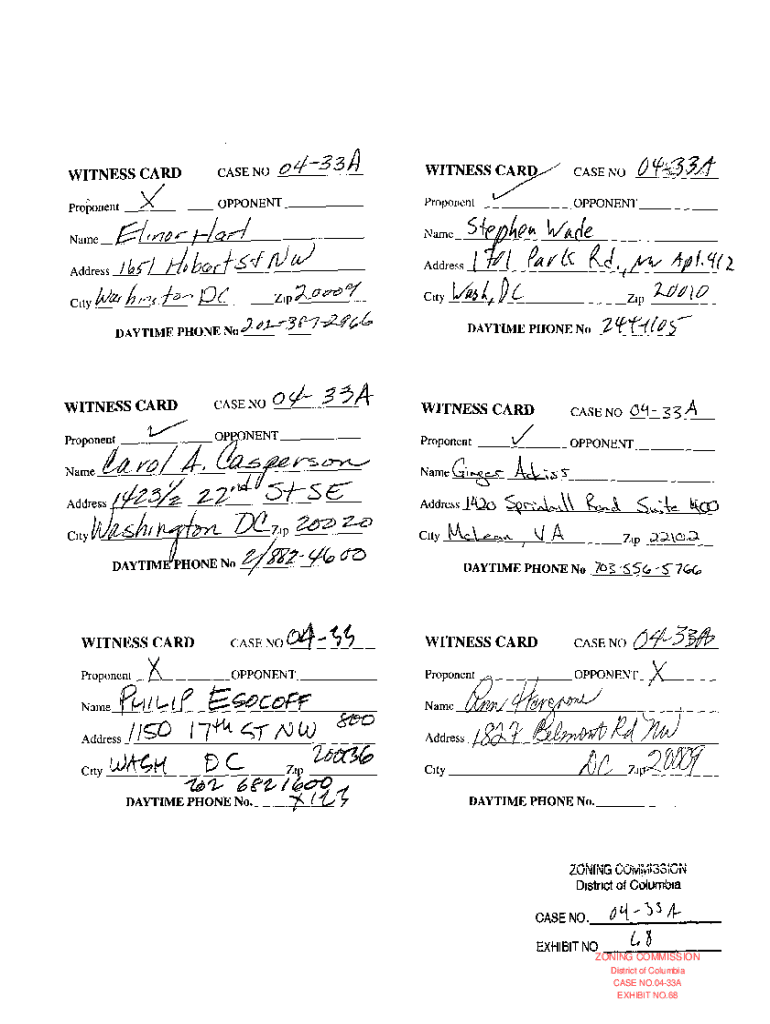 WITNESS CARD CASE NO 04-33A
Proponent X OPPONENT
Name Elinor Hart
Address 1651 Hobart St NW
City Washington DC Zip 20009
DAYTIME PHONE No 202-387-2966
WITNESS CARD CASE NO 04-33A
Proponent ✓ OPPONENT
Name Stephen Wade
Address 1701 Park Rd., NW Apt. 412
City Wash, DC Zip 20010
DAYTIME PHONE No 244-1105
WITNESS CARD CASE NO 04-33A
Proponent ✓ OPPONENT
Name Carol A. Casperson
Address 1423½ 22nd St SE
City Washington DC Zip 20020
DAYTIME PHONE No 2/882-4600
WITNESS CARD CASE NO 04-33A
Proponent ✓ OPPONENT
Name Ginger Ackiss
Address 1420 Springhill Road Suite 400
City McLean, VA Zip 22102
DAYTIME PHONE No 703-556-5766
WITNESS CARD CASE NO 04-33
Proponent X OPPONENT
Name PHILIP ESOCOFF
Address 1150 17th ST NW 800
City WASH DC Zip 20036
202 682 1600
DAYTIME PHONE No. X123
WITNESS CARD CASE NO 04-33A
Proponent OPPONENT X
Name Ann Hargrove
Address 1827 Belmont Rd NW
City DC Zip 20009
DAYTIME PHONE No.
ZONING COMMISSION
District of Columbia
CASE NO. 04-33A
EXHIBIT NO 68
ZONING COMMISSION
District of Columbia
CASE NO.04-33A
EXHIBIT NO.68